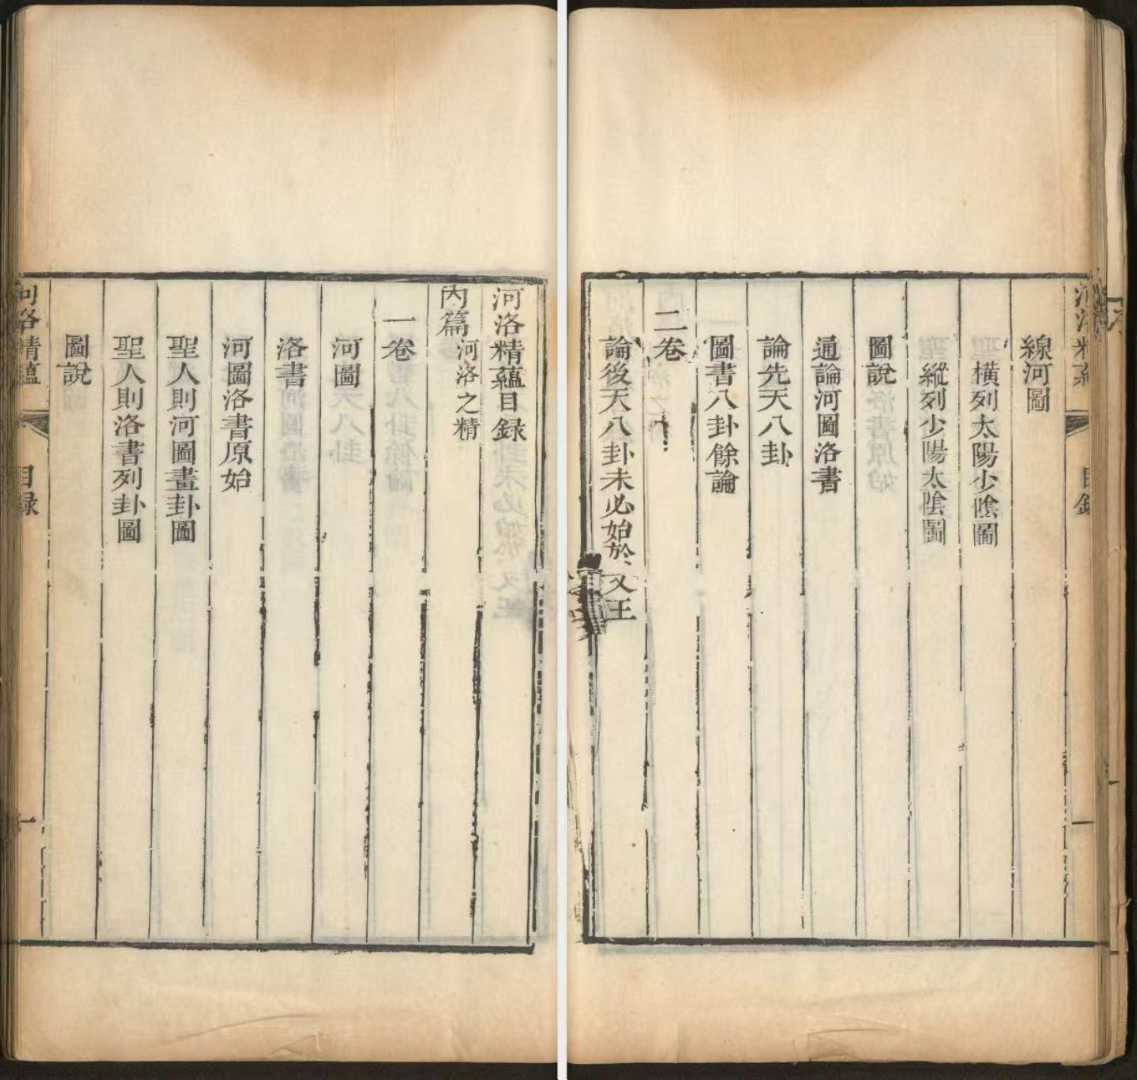 河洛精蘊目録
内篇 河洛之精
一卷
河圖
洛書
河圖洛書原始
聖人則河圖畫卦圖
聖人則洛書列卦圖
圖說
河洛精蘊 目録 一
河洛精蘊 目録
線河圖
橫列太陽少陰圖
縱列少陽太陰圖
圖說
通論河圖洛書
論先天八卦
圖書八卦餘論
二卷
論後天八卦未必始於文王